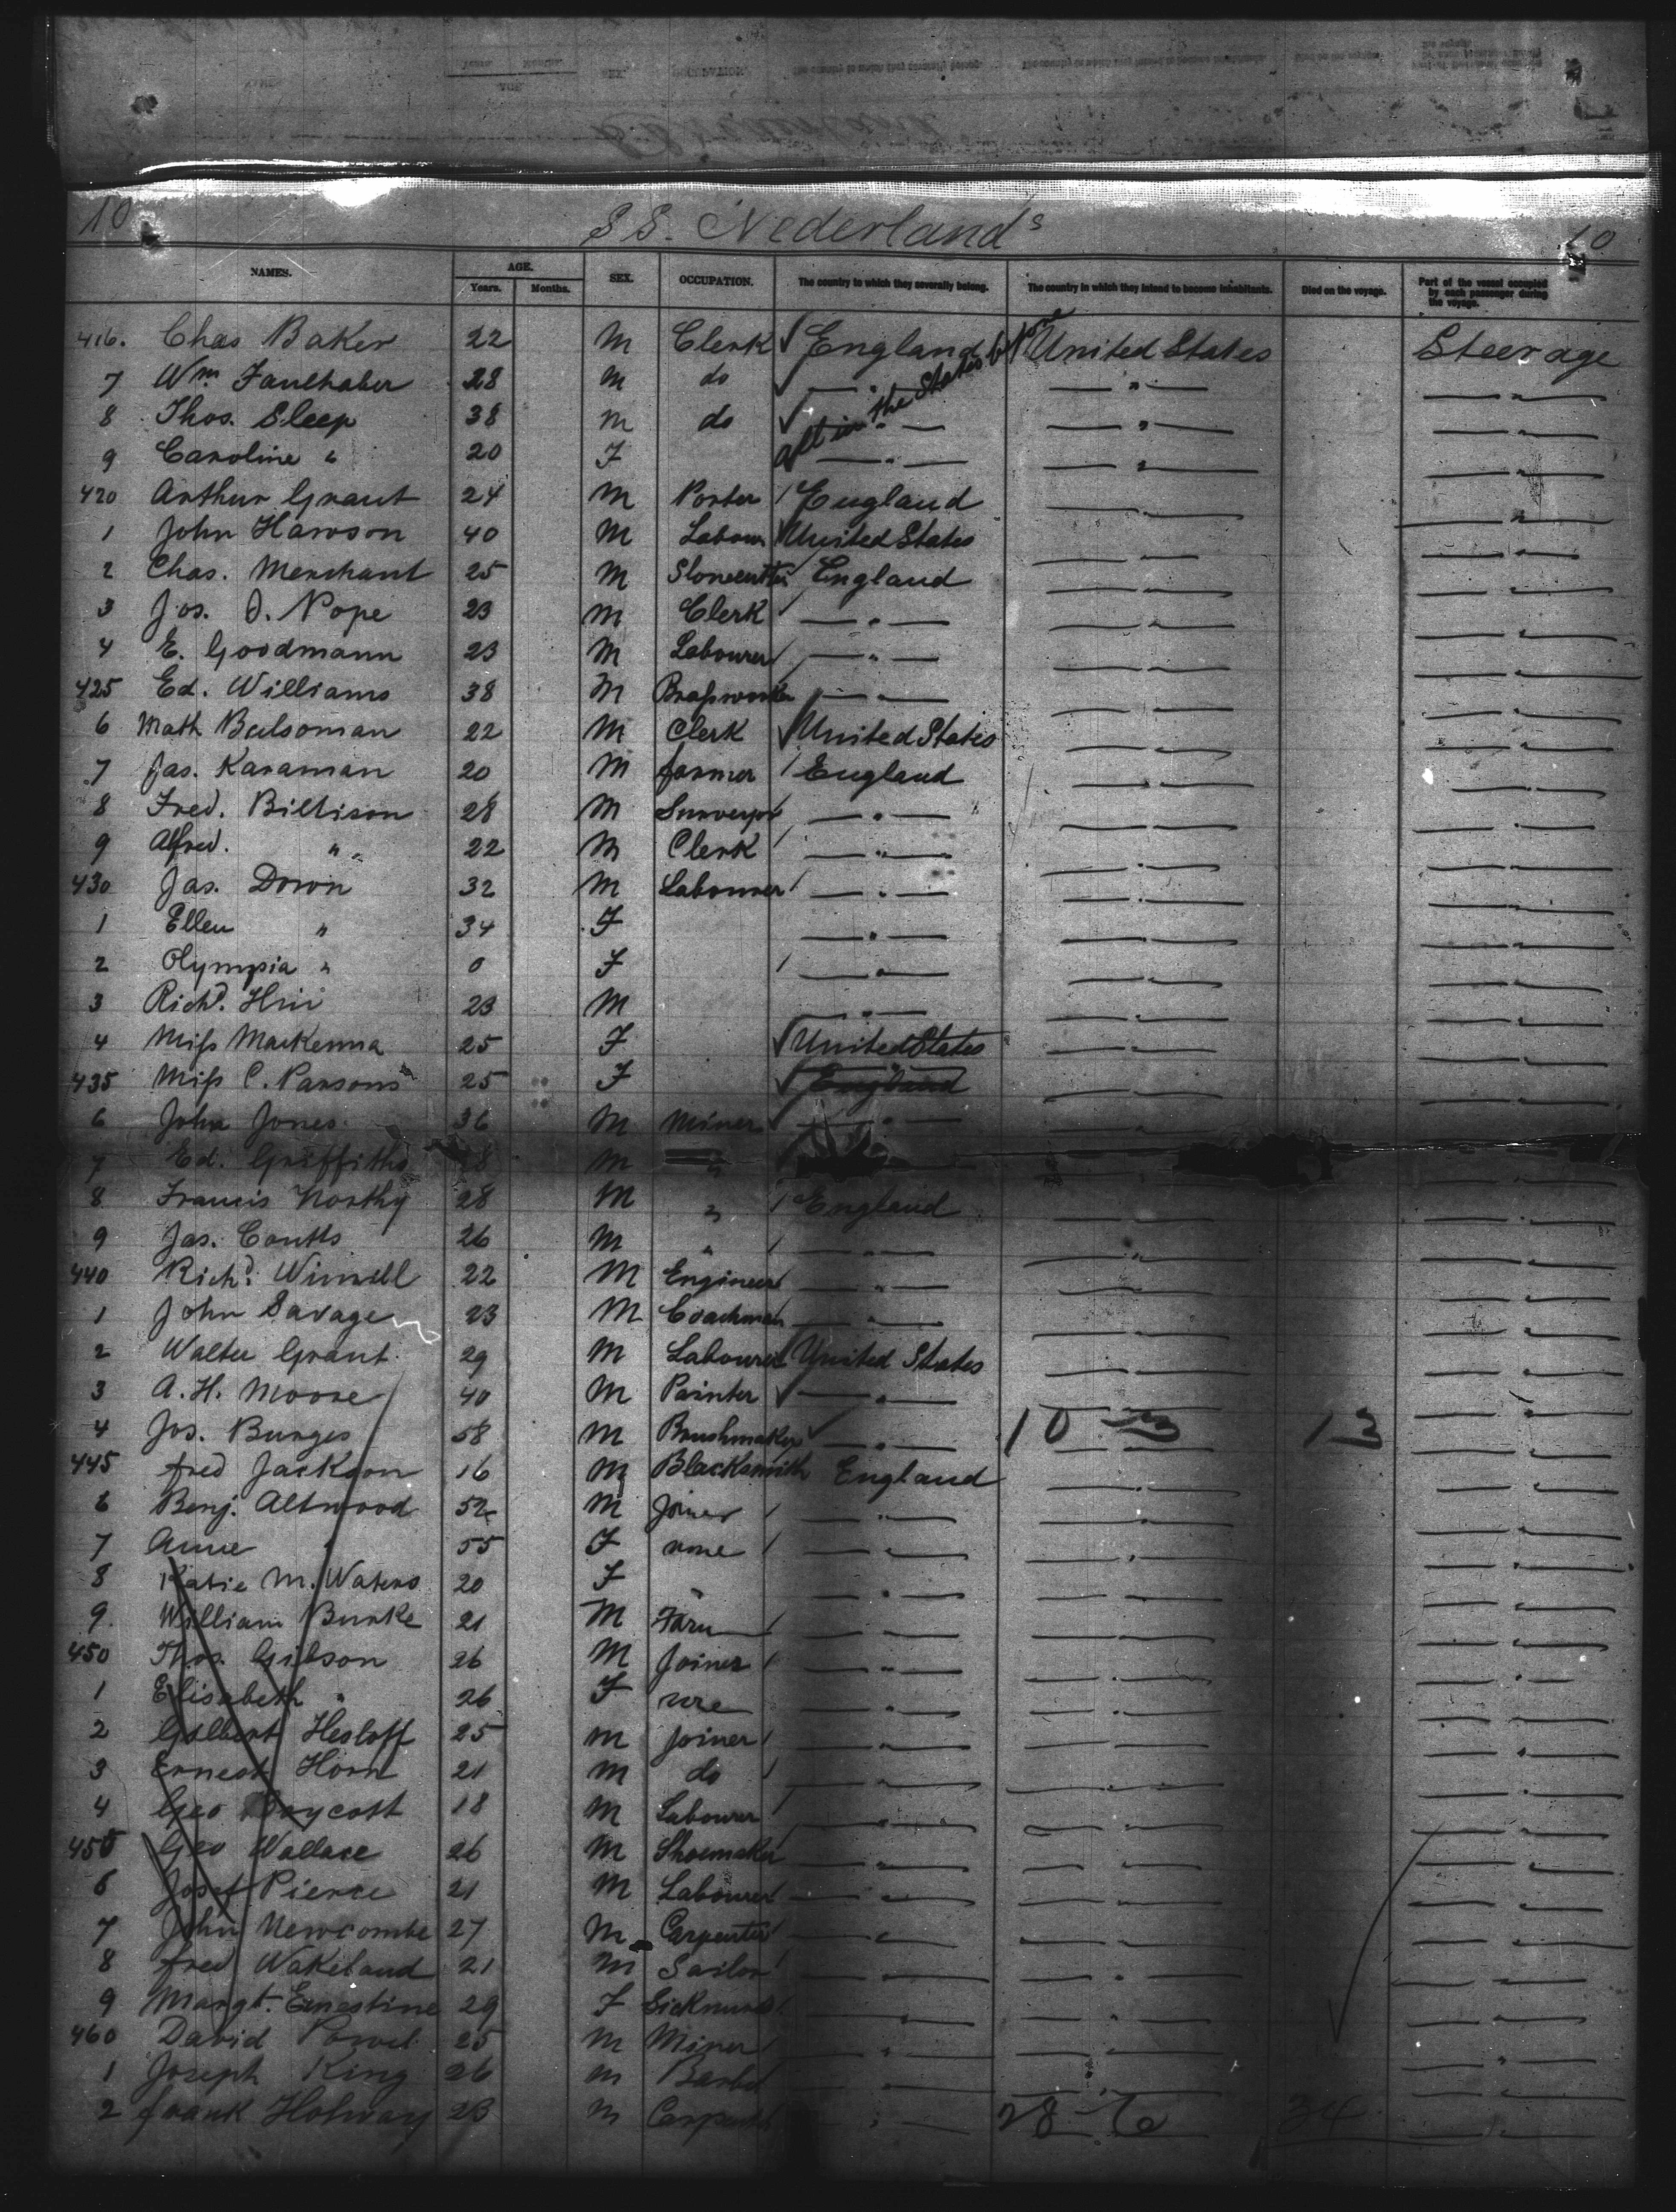 10 S S. Nederland s 10
NAMES. AGE. Years. Months. SEX. OCCUPATION. The country to which they severally belong. The country in which they intend to become inhabitants. Died on the voyage. Part of the vessel occupied by each passenger during the voyage.
all in the States before
416. Chas Baker 22 M Clerk England United States Steerage
7 Wm. Faulhaber 28 M do — " — — " — — " —
8 Thos. Sleep 38 M do — " — — " — — " —
9 Caroline " 20 F — " — — " — — " —
420 Arthur Grant 24 M Porter England — " — — " —
1 John Hawson 40 M Labour United States — " — — " —
2 Chas. Merchant 25 M Stonecutter England — " — — " —
3 Jos. J. Pope 23 M Clerk — " — — " — — " —
4 E. Goodmann 23 M Labourer — " — — " — — " —
425 Ed. Williams 38 M Brassworker — " — — " — — " —
6 Math Bulsoman 22 M Clerk United States — " — — " —
7 Jas. Karaman 20 M farmer England — " — — " —
8 Fred. Billison 28 M Surveyor — " — — " — — " —
9 Alfred. " 22 M Clerk — " — — " — — " —
430 Jas. Down 32 M Labourer — " — — " — — " —
1 Ellen " 34 F — " — — " — — " —
2 Olympia " 0 F — " — — " — — " —
3 Richd. 23 M — " — — " — — " —
4 Miss MacKenna 25 F United States — " — — " —
435 Miss C. Parsons 25 F England — " — — " —
6 John Jones 36 M Miner — " — — " — — " —
7 Ed. Griffiths 28 M " — " —
8 Francis Northy 28 M " England — " — — " —
9 Jas. Coutts 26 M " — " — — " — — " —
440 Richd. Winnell 22 M Engineer — " — — " — — " —
1 John Savage 23 M Coachman — " — — " — — " —
2 Walter Grant 29 M Labourer United States — " — — " —
3 A. H. Moore 40 M Painter — " — — " — — " —
4 Jos. Burges 58 M Brushmaker — " — 10 - 3 13 — " —
445 fred Jackson 16 M Blacksmith England — " — — " —
6 Benj. Altwood 52 M Joiner — " — — " — — " —
7 Annie " 55 F none — " — — " — — " —
8 Katie M. Waters 20 F — " — — " — — " —
9. William Burke 21 M Farm — " — — " — — " —
450 Thos. Gibson 26 M Joiner — " — — " — — " —
1 Elisabeth " 26 F — " — — " — — " —
2 Gilbert Hesloff 25 M Joiner — " — — " — — " —
3 Ernest Horn 21 M do — " — — " — — " —
4 Geo Boycott 18 M Labourer — " — — " — — " —
455 Geo Wallace 26 M Shoemaker — " — — " — — " —
6 Josef Pierce 21 M Labourer — " — — " — — " —
7 John Newcombe 27 M Carpenter — " — — " — — " —
8 fred Wakeland 21 M Sailor — " — — " — — " —
9 Margt. Ernestine 29 F Sicknurse — " — — " — — " —
460 David Powel 25 M Miner — " — — " — — " —
1 Joseph King 26 M Barber — " — — " — — " —
2 frank Holway 23 M Carpenter — " — 28 - 6 34 — " —